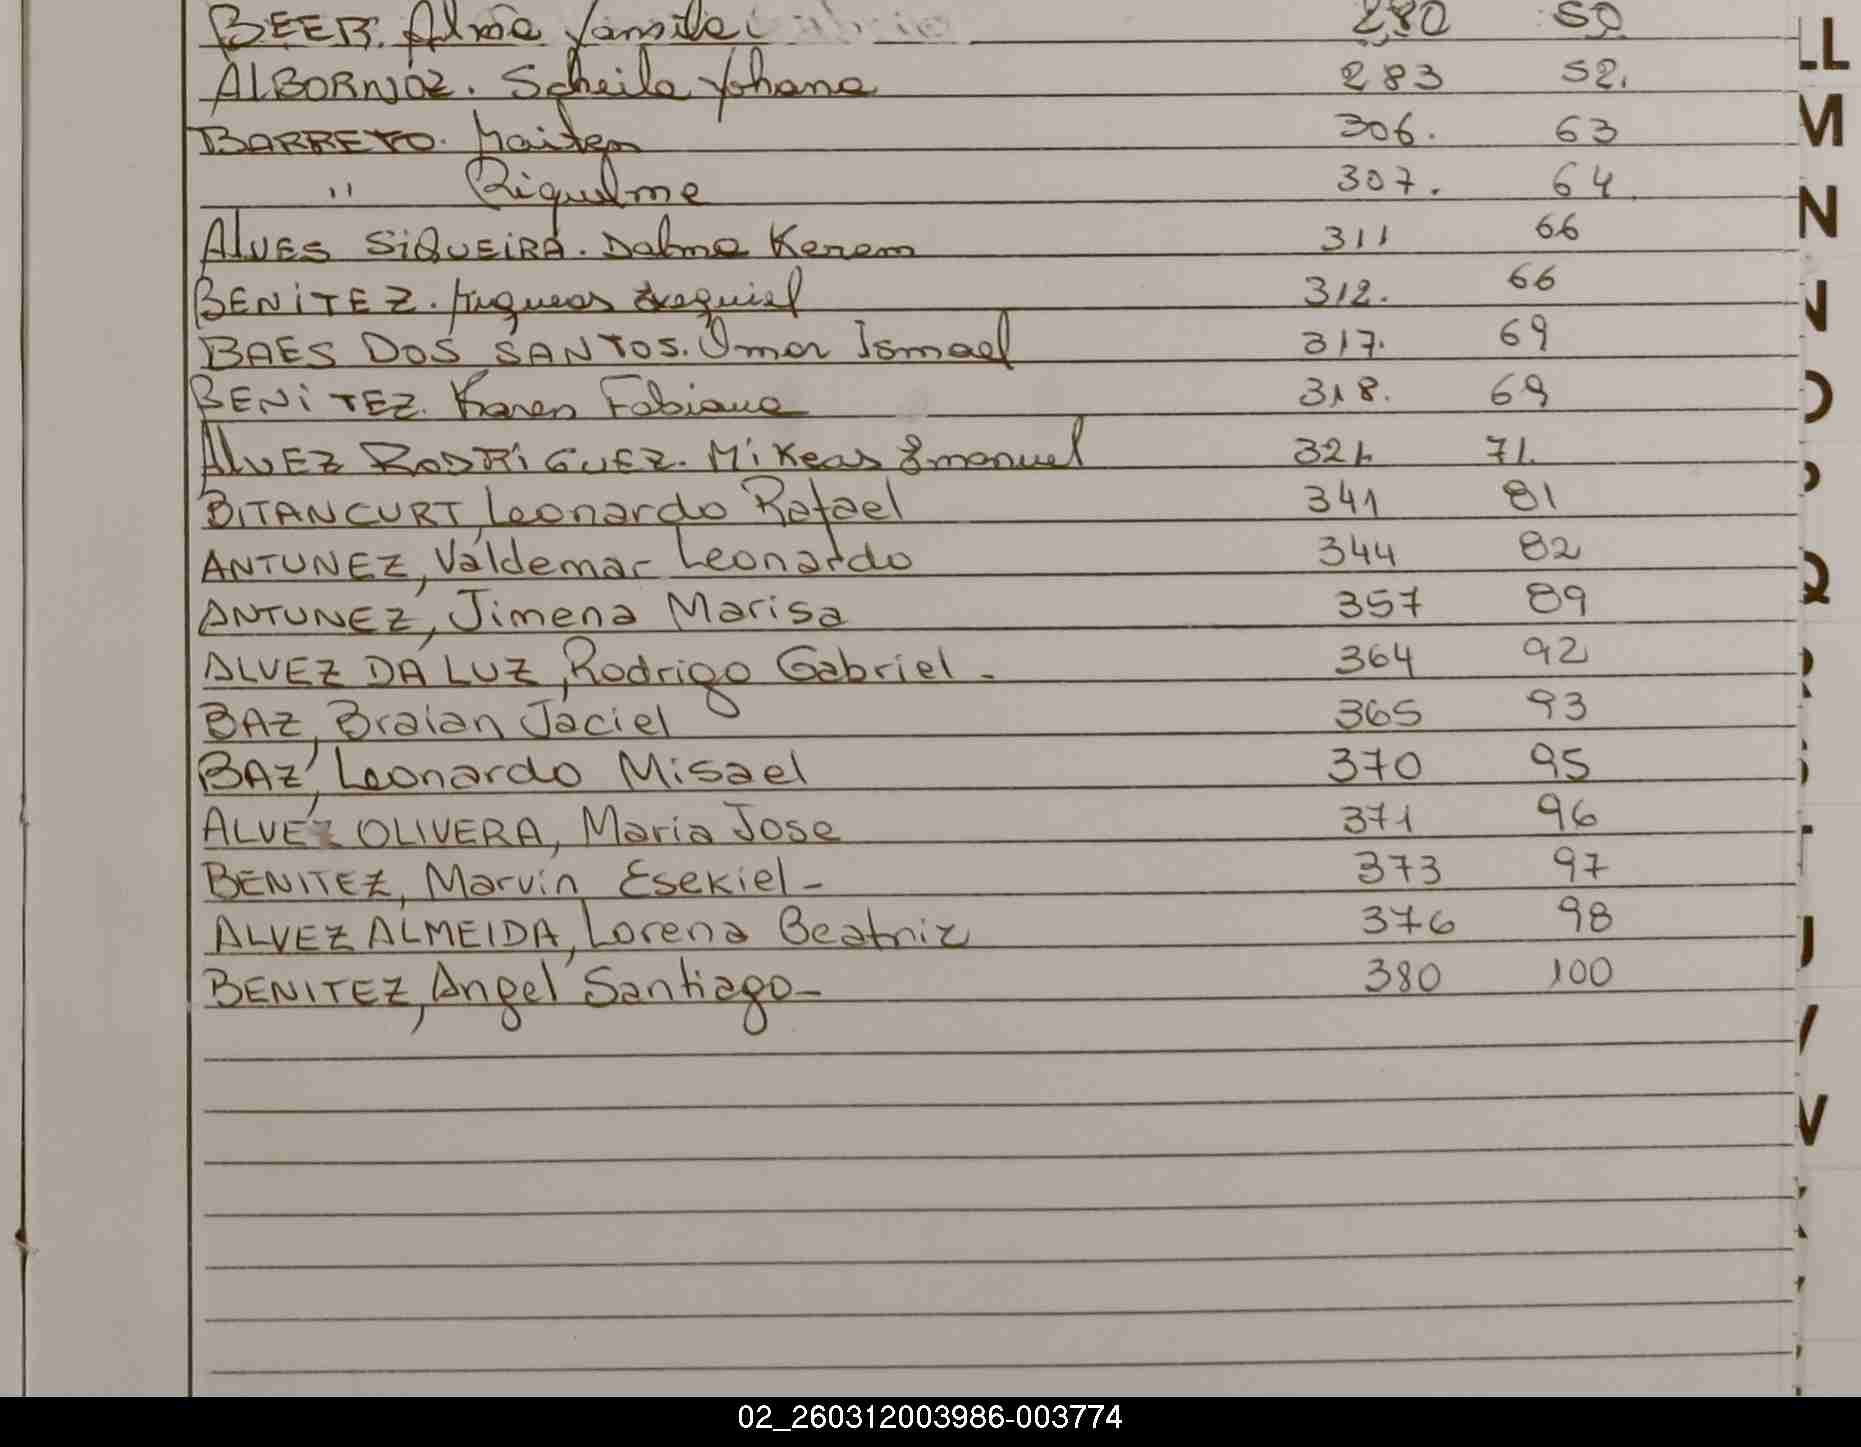 BEER. Alma Yamile 280 50
ALBORNOZ. Scheila Yohana 283 52.
BARRETO. Maiten 306. 63
" Riquelme 307. 64
ALVES SIQUEIRA. Dalma Kerem 311 66
BENITEZ. Exequiel 312. 66
BAES DOS SANTOS. Omar Ismael 317. 69
BENITEZ. Karen Fabiana 318. 69
ALVEZ RODRIGUEZ. Mikeas Emanuel 321. 71.
BITANCURT, Leonardo Rafael 341 81
ANTUNEZ, Valdemar Leonardo 344 82
ANTUNEZ, Jimena Marisa 357 89
ALVEZ DA LUZ, Rodrigo Gabriel - 364 92
BAZ, Braian Jaciel 365 93
BAZ, Leonardo Misael 370 95
ALVEZ OLIVERA, Maria Jose 371 96
BENITEZ, Marvin Esekiel - 373 97
ALVEZ ALMEIDA, Lorena Beatriz 376 98
BENITEZ, Angel Santiago - 380 100
LL
M
N
Q
V
02_260312003986-003774